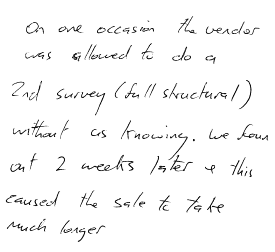 On one occasion the vendor
was allowed to do a
2nd survey (full structural)
without us knowing. We foun
out 2 weeks later & this
caused the sale to take
much longer